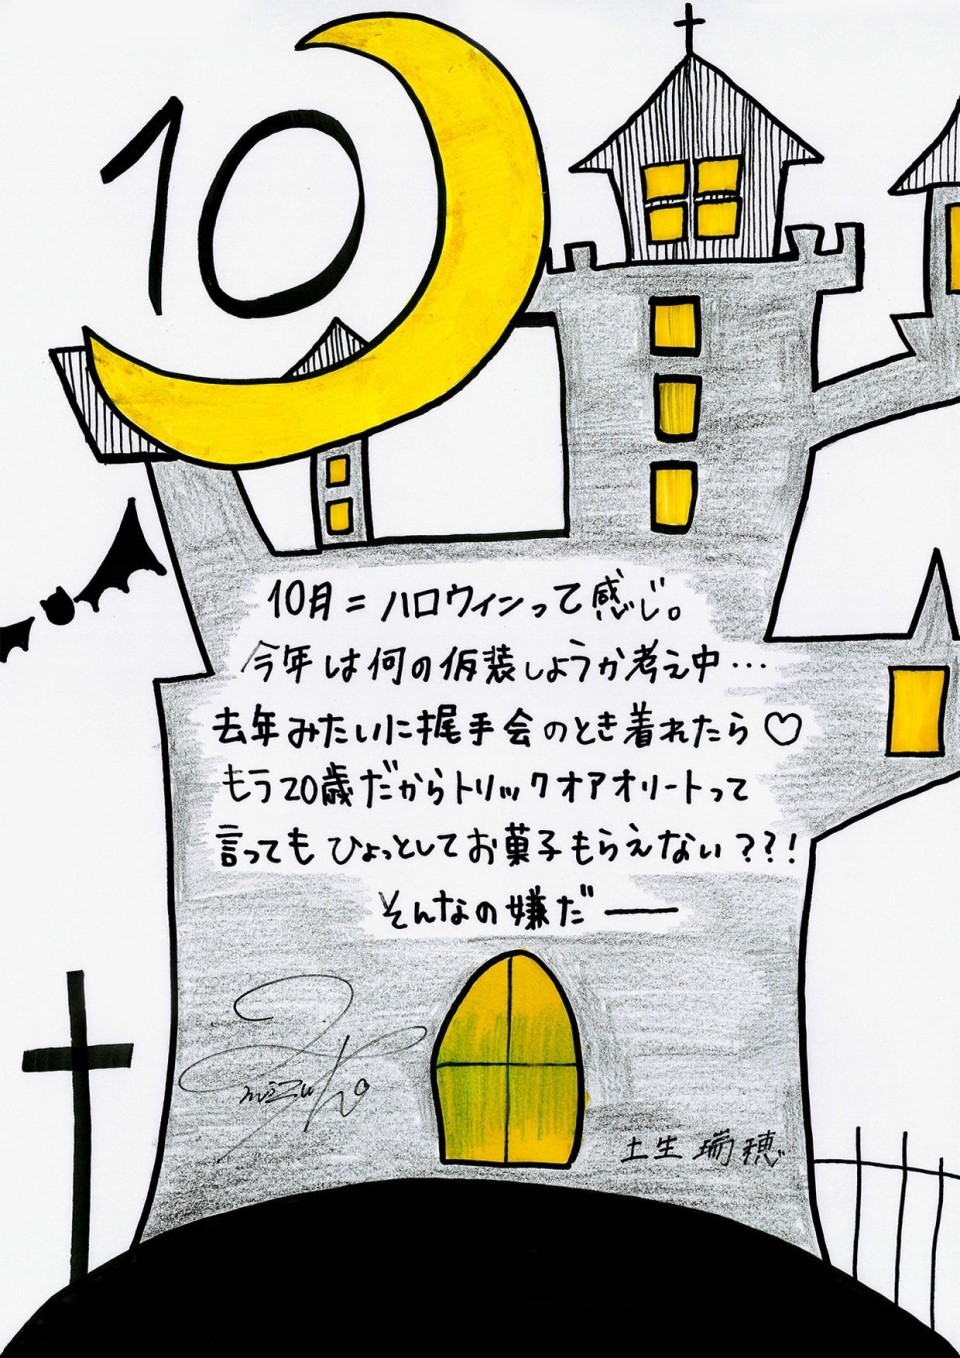 10
10月=ハロウィンって感じ。
今年は何の仮装しようか考え中…
去年みたいに握手会のとき着れたら♡
もう20歳だからトリックオアオリートって
言ってもひょっとしてお菓子もらえない???!
そんなの嫌だ――
mizuho
土生瑞穂